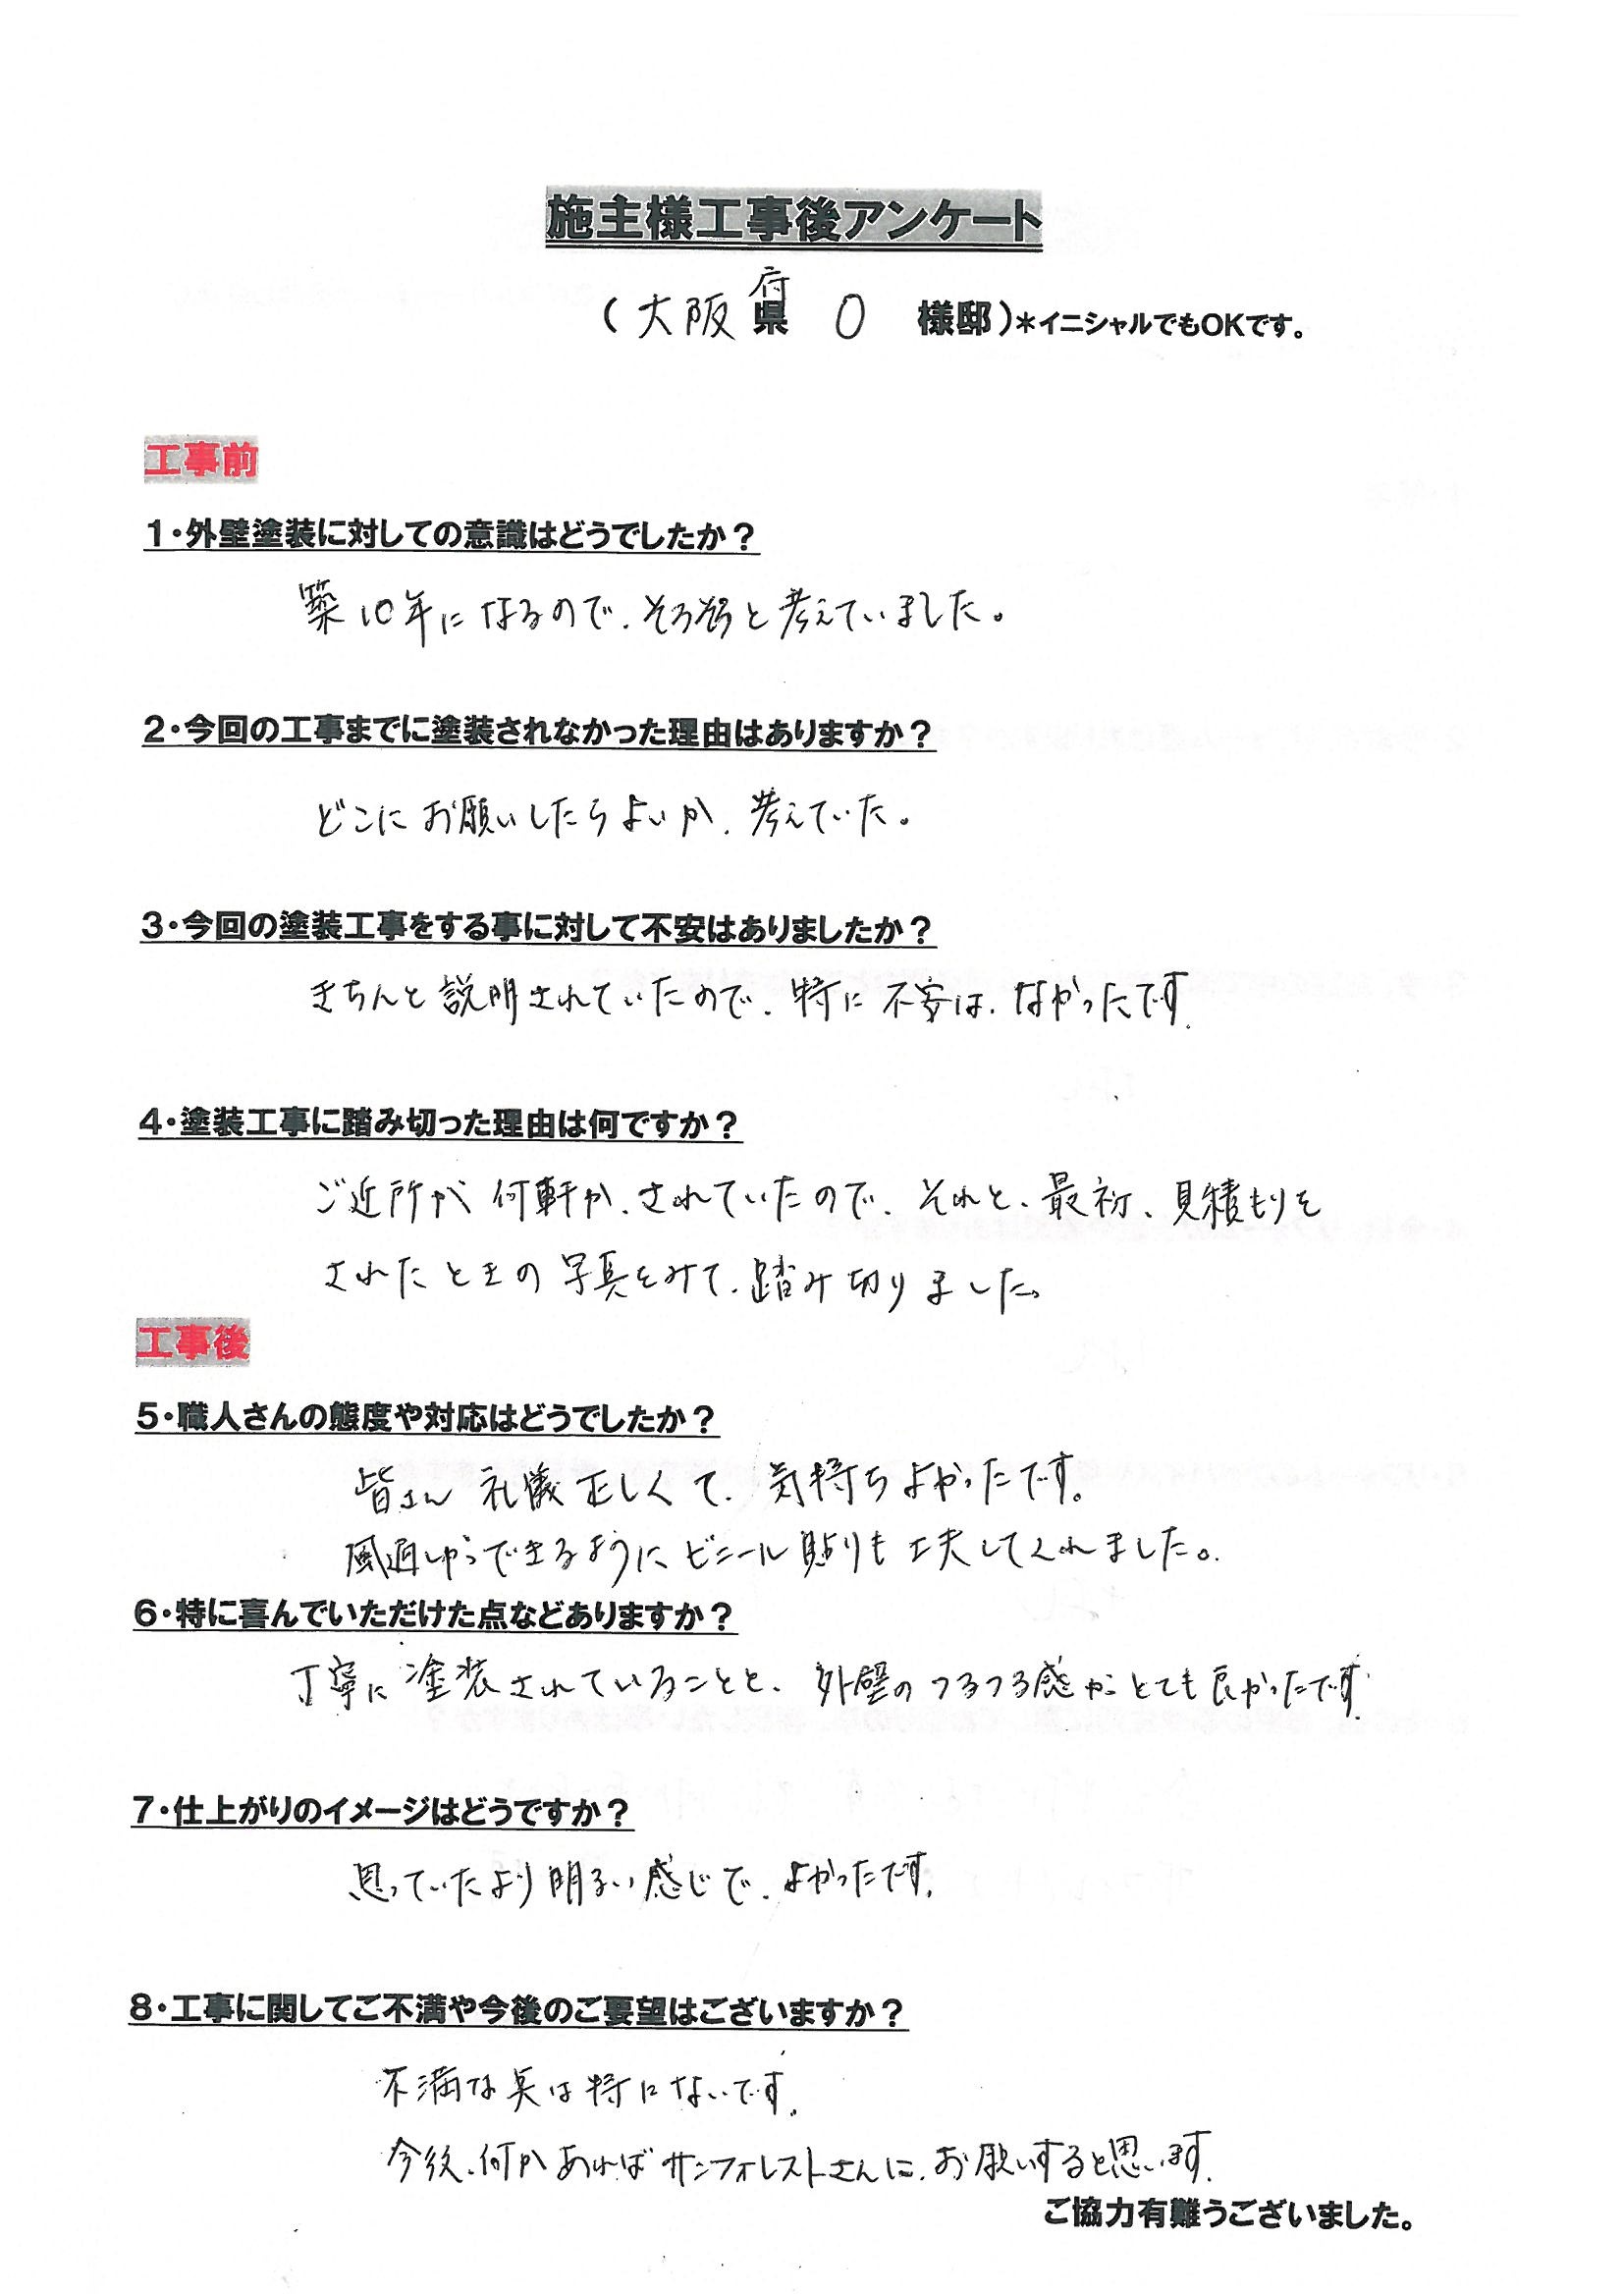 施主様工事後アンケート
(大阪府県 O 様邸)*イニシャルでもOKです。
工事前
1・外壁塗装に対しての意識はどうでしたか?
築10年になるので、そろそろと考えていました。
2・今回の工事までに塗装されなかった理由はありますか?
どこにお願いしたらよいか、考えていた。
3・今回の塗装工事をする事に対して不安はありましたか?
きちんと説明されていたので、特に不安は、なかったです。
4・塗装工事に踏み切った理由は何ですか?
ご近所が何軒か、されていたので、それと、最初、見積もりを
されたときの写真をみて、踏み切りました。
工事後
5・職人さんの態度や対応はどうでしたか?
皆さん礼儀正しくて、気持ちよかったです。
風通しができるようにビニール貼りも工夫してくれました。
6・特に喜んでいただけた点などありますか?
丁寧に塗装されていることと、外壁のつるつる感がとても良かったです。
7・仕上がりのイメージはどうですか?
思っていたより明るい感じで、よかったです。
8・工事に関してご不満や今後のご要望はございますか?
不満な点は特にないです。
今後、何かあればサンフォレストさんに、お願いすると思います。
ご協力有難うございました。